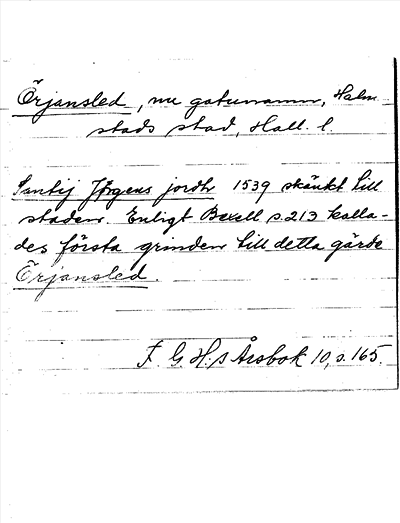 Örjansled, nu gatunamn, Halm
stads stad, Hall. l.
Santij Jørgens jordh 1539 skänkt till
staden. Enligt Bexell s. 213 kalla-
des första grinden till detta gärde
Örjansled.
F. G. H:s Årsbok 10, s. 165.